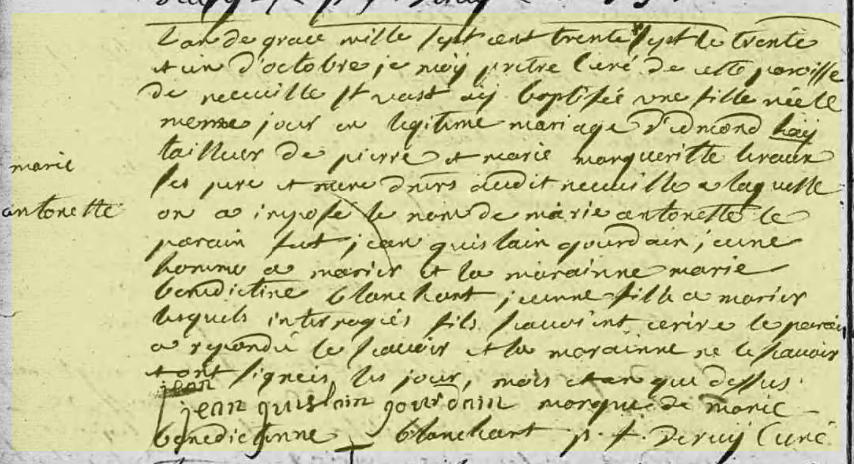 L'an de grace mille sept cent trente sept le trente
et un d'octobre je moÿ pretre Curé de cette paroisse
de neuville st vast aÿ baptisée une fille née le
meme jour en legitime mariage d'edmond haÿ
tailleur de pierre et marie margueritte leraux
ses pere et mere dmrs audit neuville a laquelle
on a imposé le nom de marie antonette le
parain fut jean guislain gourdain jeune
homme a marier et la marainne marie
benedictine blanchant jeunne fille a marier
lesquels interrogiés sils scavoint ecrire le parain
a repondu le scavoir et la marainne ne le scavoir
et ont signeis les jour, mois et an que dessus.
jean
jean guislain gourdain marque de marie
benedictinne blanchant p. f. Deruÿ Curé
marie
antonette